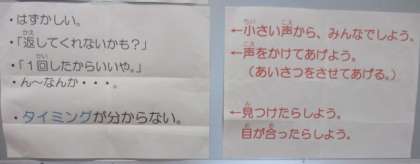 ・はずかしい。
・「返してくれないかも?」
・「1回したからいいや。」
・ん〜なんか・・・。
・タイミングが分からない。
←小さい声から、みんなでしよう。
←声をかけてあげよう。
(あいさつをさせてあげる。)
←見つけたらしよう。
目が合ったらしよう。